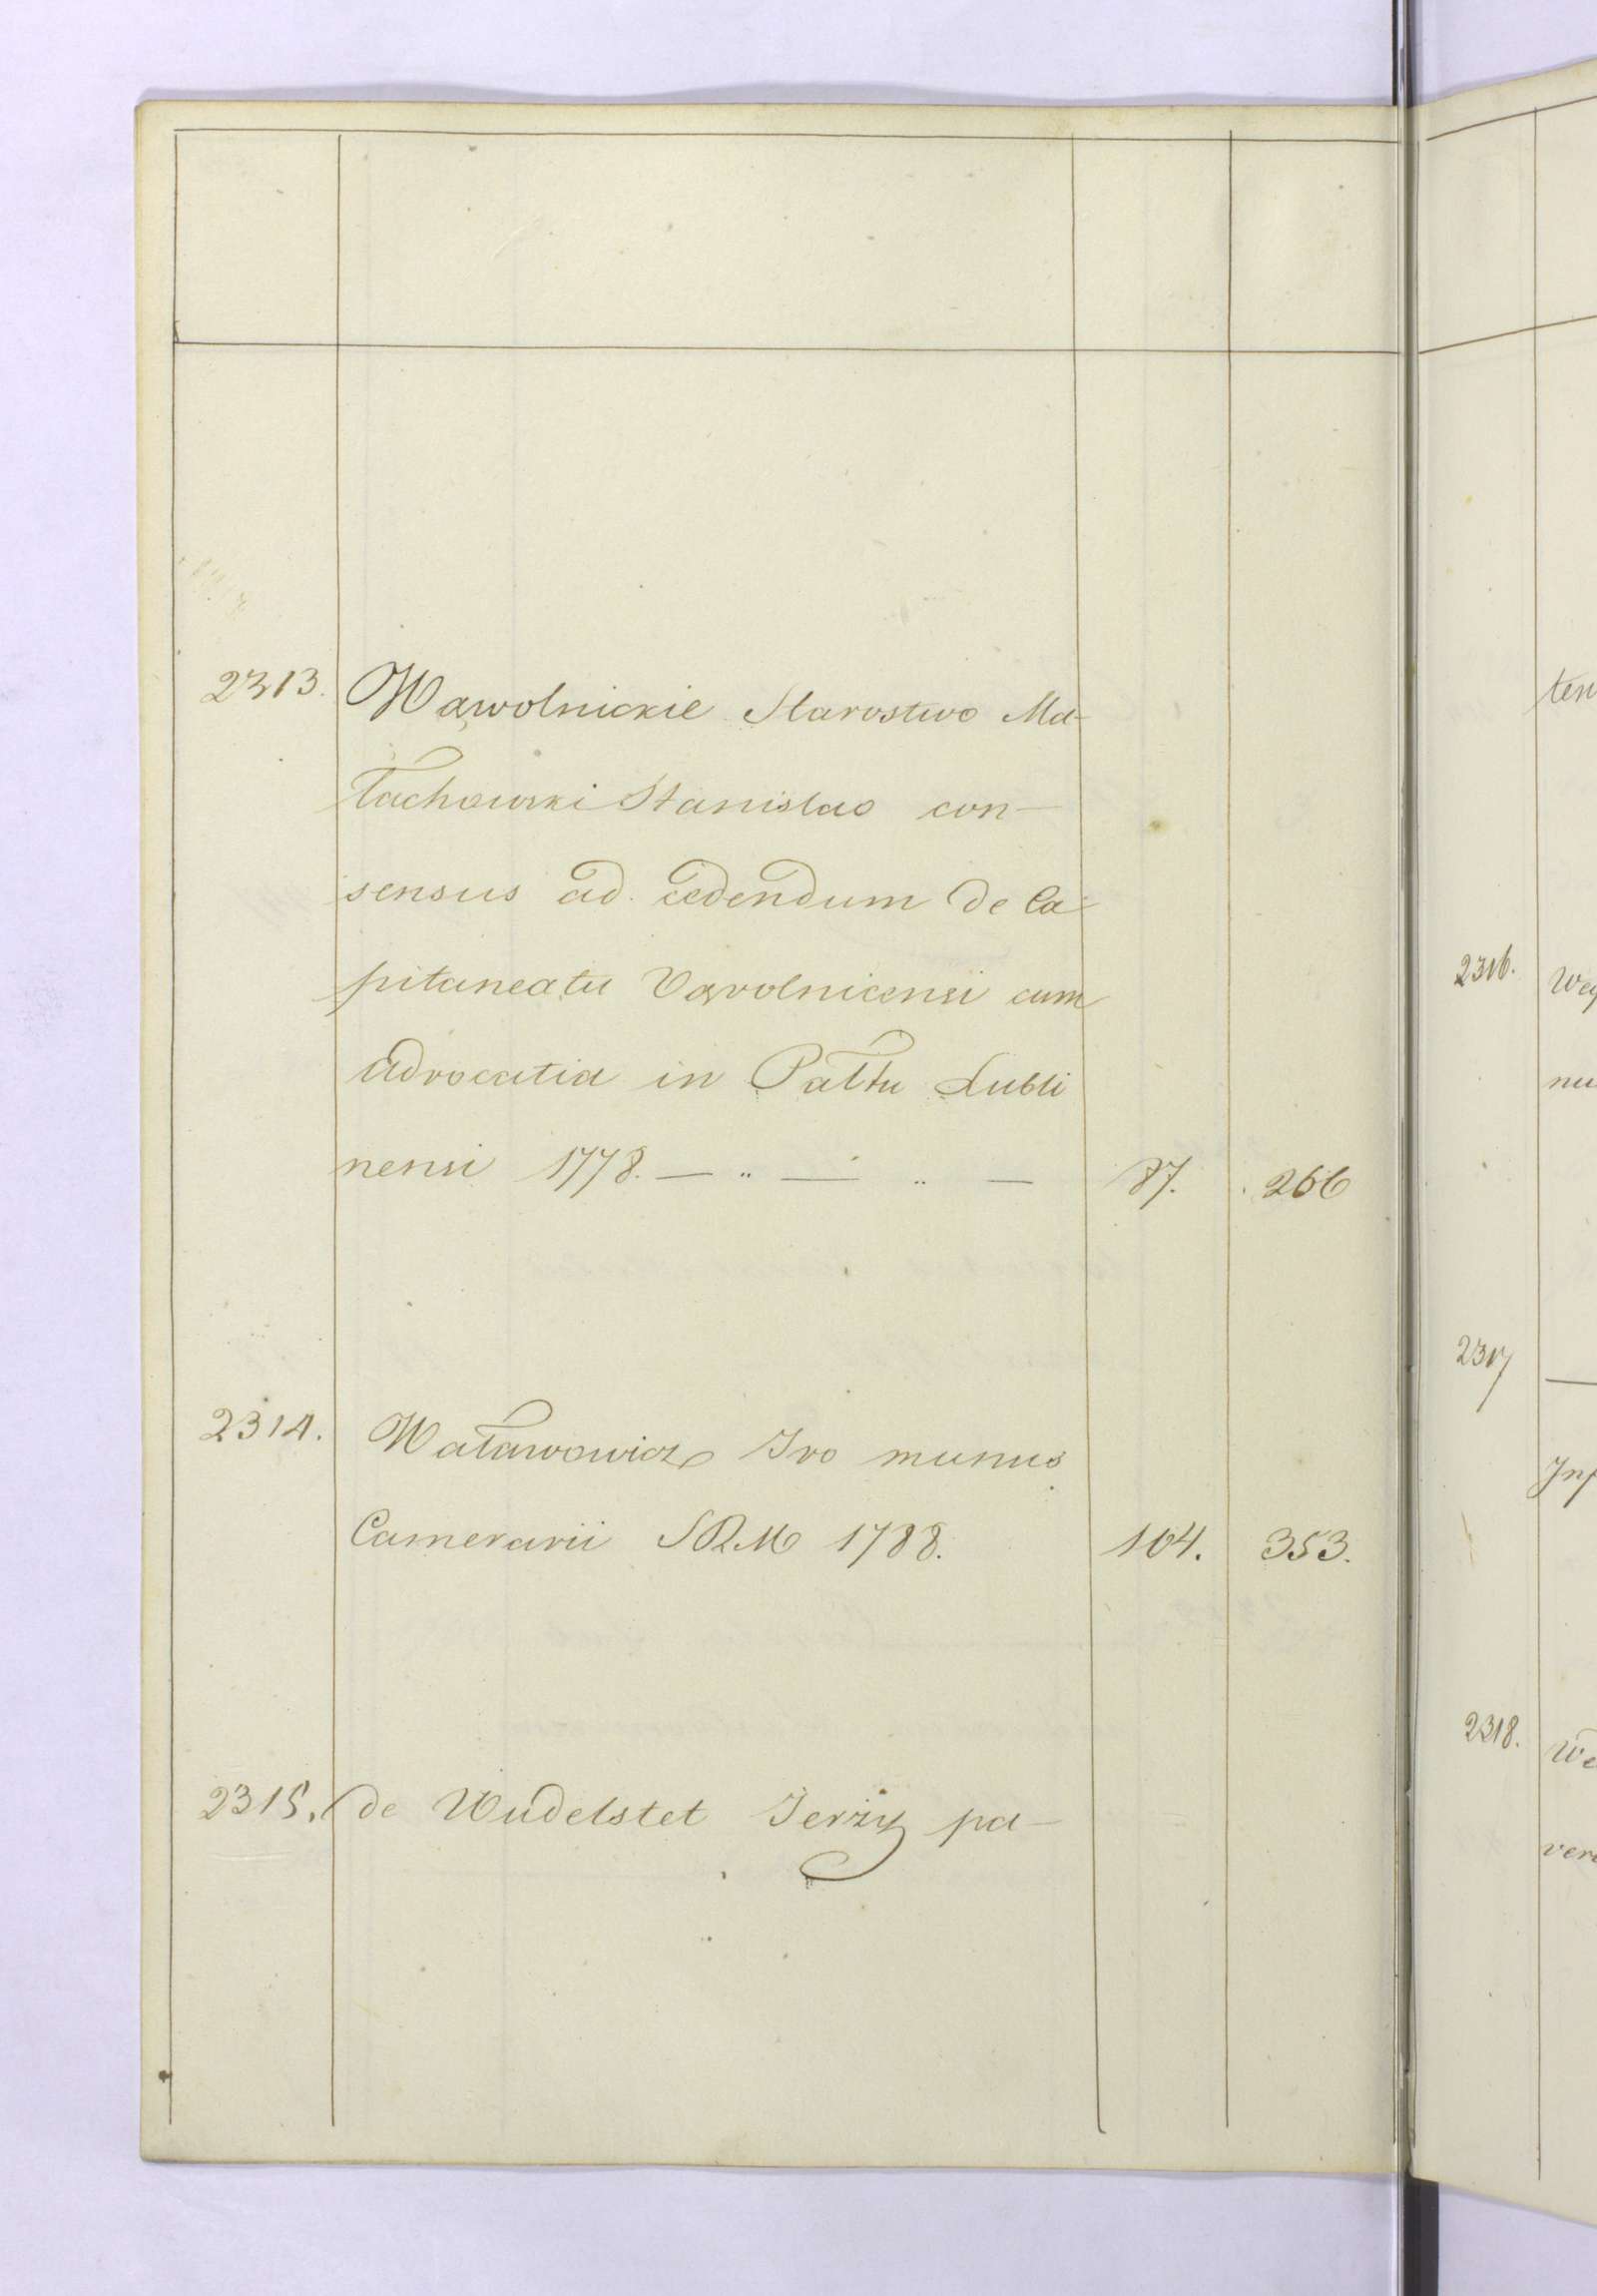 2313. Wąwolnickie Starostwo Ma-
łachowski Stanislao con-
sensus ad cedendum de Ca-
pitaneatu Vąvolnicensi cum
advocatia in Pałtu Lubli
nensi 1778. — .. — .. — 87. 266
2314. Waławowicz Ivo munus
Camerarii SRM 1788. 104. 353.
2315. de Wudelstet Jerzy pa-
ten
2316. Wey
nu
2317 —
Inf
2318. We
vere